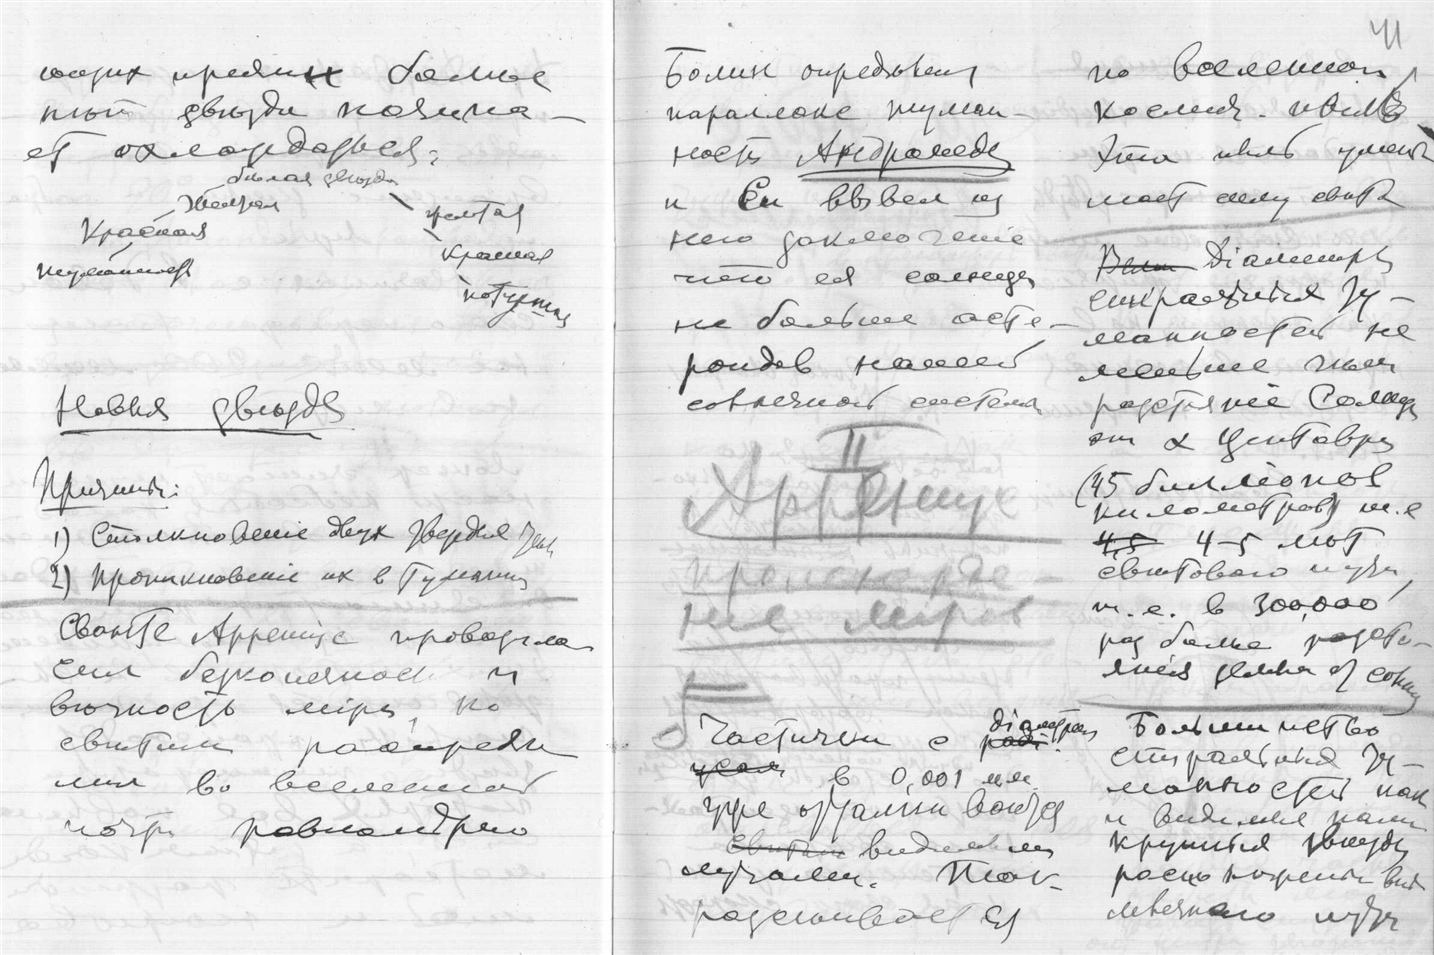 ющих причин более
нют звѣзды начина-
ет охлаждаться:
бѣлая звѣзда
Желтая
желтая
Красная
Красная
туманность
потухшая
Новыя звѣзды
Причины:
1) Столкновение двух твердых тел
2) Проникновение их в туманн
Сванте Аррениус провозгла
сил безконечность и
вѣчность міра, но
свѣтил распредѣ
лил во вселенной
почти равномѣрно
41
Болин определил
параллакс туман-
ность Андромеды
и вывел из
него заключение
что ея солнца
не больше асте-
роидов нашей
солнечной системы
II
Аррениус
Происхожде-
ние миров
Частички с діаметром
в 0,001 мм.
уже отталкиваются
видимыми
лучами. Так
разсеивается
по вселенной
космич. пыль
Эта пыль умень
шает силу свѣта
Діаметры
спиральных ту-
манностей не
меньше чѣм
разстояние Солнца
от α Центавры
(45 биллионов
километров) т.е
4-5 лѣт
свѣтового пути,
т.е. в 300,000
раз более разсто-
яния земли от солнца
Большинство
спиральных ту-
манностей как
и видимыя нами
крупныя звезды
расположены вне
млечного пути